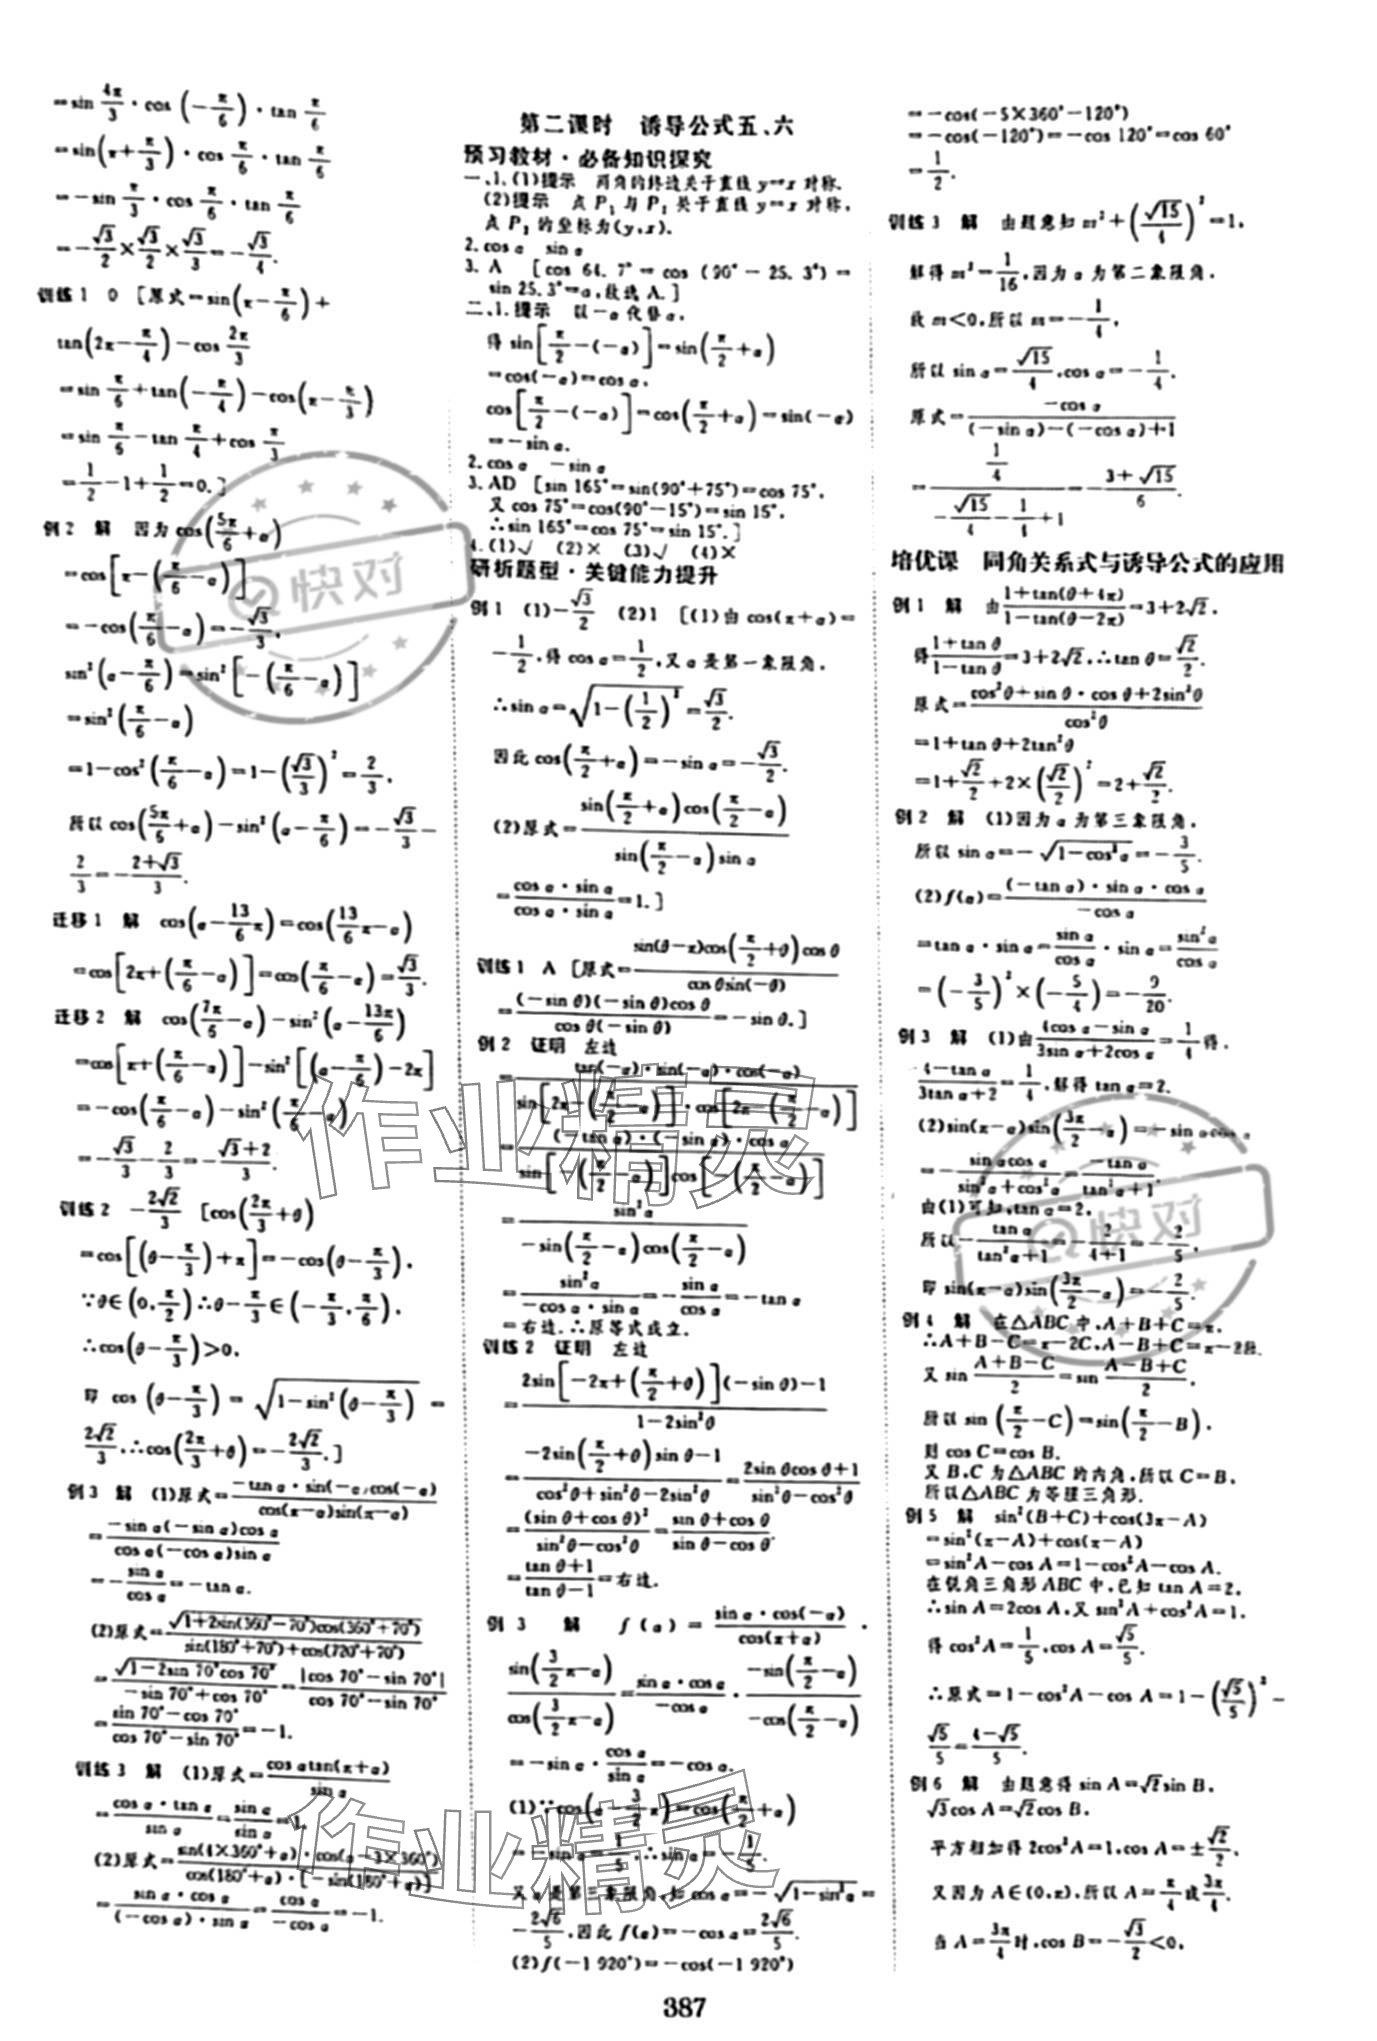 =sin 4π/3 · cos(-π/6) · tan π/6
=sin(π+π/3) · cos π/6 · tan π/6
=-sin π/3 · cos π/6 · tan π/6
=-√3/2×√3/2×√3/3=-√3/4.
训练1 0 [原式=sin(π-π/6)+
tan(2π-π/4)-cos 2π/3
=sin π/6+tan(-π/4)-cos(π-π/3)
=sin π/6-tan π/4+cos π/3
=1/2-1+1/2=0.]
例2 解 因为 cos(5π/6+α)
=cos[π-(π/6-α)]
=-cos(π/6-α)=-√3/3,
sin²(α-π/6)=sin²[-(π/6-α)]
=sin²(π/6-α)
=1-cos²(π/6-α)=1-(√3/3)²=2/3,
所以 cos(5π/6+α)-sin²(α-π/6)=-√3/3-
2/3=-(2+√3)/3.
迁移1 解 cos(α-13/6π)=cos(13/6π-α)
=cos[2π+(π/6-α)]=cos(π/6-α)=√3/3.
迁移2 解 cos(7π/6-α)-sin²(α-13π/6)
=cos[π+(π/6-α)]-sin²[(α-π/6)-2π]
=-cos(π/6-α)-sin²(π/6-α)
=-√3/3-2/3=-(√3+2)/3.
训练2 -2√2/3 [cos(2π/3+θ)
=cos[(θ-π/3)+π]=-cos(θ-π/3),
∵θ∈(0,π/2)∴θ-π/3∈(-π/3,π/6),
∴cos(θ-π/3)>0,
即 cos(θ-π/3)=√(1-sin²(θ-π/3))=
2√2/3,∴cos(2π/3+θ)=-2√2/3.]
例3 解 (1)原式=(-tan α·sin(-α)cos(-α))/(cos(π-α)sin(π-α))
=(-sin α(-sin α)cos α)/(cos α(-cos α)sin α)
=-sin α/cos α=-tan α.
(2)原式=√(1+2sin(360°-70°)cos(360°+70°))/(sin(180°+70°)+cos(720°+70°))
=√(1-2sin 70°cos 70°)/(-sin 70°+cos 70°)=|cos 70°-sin 70°|/(cos 70°-sin 70°)
=(sin 70°-cos 70°)/(cos 70°-sin 70°)=-1.
训练3 解 (1)原式=cos αtan(π+α)/sin α
=cos α·tan α/sin α=sin α/sin α=1.
(2)原式=(sin(4×360°+α)·cos(α-3×360°))/(cos(180°+α)·[-sin(180°+α)])
=(sin α·cos α)/((-cos α)·sin α)=cos α/(-cos α)=-1.
第二课时 诱导公式五、六
预习教材·必备知识探究
一、1.(1)提示 两角的终边关于直线 y=x 对称.
(2)提示 点 P₁ 与 P₂ 关于直线 y=x 对称,
点 P₂ 的坐标为(y,x).
2.cos α sin α
3.A [cos 64.7°=cos(90°-25.3°)=
sin 25.3°=a,故选 A.]
二、1.提示 以-α代替α,
得 sin[π/2-(-α)]=sin(π/2+α)
=cos(-α)=cos α,
cos[π/2-(-α)]=cos(π/2+α)=sin(-α)
=-sin α.
2.cos α -sin α
3.AD [sin 165°=sin(90°+75°)=cos 75°,
又 cos 75°=cos(90°-15°)=sin 15°,
∴sin 165°=cos 75°=sin 15°.]
4.(1)√ (2)× (3)√ (4)×
研析题型·关键能力提升
例1 (1)-√3/2 (2)1 [(1)由 cos(π+α)=
-1/2,得 cos α=1/2,又 α 是第一象限角,
∴sin α=√(1-(1/2)²)=√3/2.
因此 cos(π/2+α)=-sin α=-√3/2.
(2)原式=(sin(π/2+α)cos(π/2-α))/(sin(π/2-α)sin α)
=(cos α·sin α)/(cos α·sin α)=1.]
训练1 A [原式=(sin(θ-π)cos(π/2+θ)cos θ)/(cos θsin(-θ))
=((-sin θ)(-sin θ)cos θ)/(cos θ(-sin θ))=-sin θ.]
例2 证明 左边
=(tan(-α)·sin(-α)·cos(-α))/(sin[2π-(π/2-α)]·cos[2π-(π/2-α)])
=((-tan α)·(-sin α)·cos α)/(sin[-(π/2-α)]cos[-(π/2-α)])
=sin²α/(-sin(π/2-α)cos(π/2-α))
=sin²α/(-cos α·sin α)=-sin α/cos α=-tan α
=右边.∴原等式成立.
训练2 证明 左边
=(2sin[-2π+(π/2+θ)](-sin θ)-1)/(1-2sin²θ)
=(-2sin(π/2+θ)sin θ-1)/(cos²θ+sin²θ-2sin²θ)=(2sin θcos θ+1)/(sin²θ-cos²θ)
=(sin θ+cos θ)²/(sin²θ-cos²θ)=(sin θ+cos θ)/(sin θ-cos θ).
=(tan θ+1)/(tan θ-1)=右边.
例3 解 f(α)=(sin α·cos(-α))/cos(π+α)·
sin(3/2π-α)/cos(3/2π-α)=(sin α·cos α)/(-cos α)·(-sin(π/2-α))/(-cos(π/2-α))
=-sin α·cos α/sin α=-cos α.
(1)∵cos(α-3/2π)=cos(π/2+α)
=-sin α=1/5,∴sin α=-1/5.
又 α 是第三象限角,知 cos α=-√(1-sin²α)=
-2√6/5,因此 f(α)=-cos α=2√6/5.
(2)f(-1 920°)=-cos(-1 920°)
=-cos(-5×360°-120°)
=-cos(-120°)=-cos 120°=cos 60°
=1/2.
训练3 解 由题意知 m²+(√15/4)²=1,
解得 m²=1/16,因为 α 为第二象限角,
故 m<0,所以 m=-1/4,
所以 sin α=√15/4,cos α=-1/4.
原式=-cos α/((-sin α)-(-cos α)+1)
=(1/4)/(-√15/4-1/4+1)=-(3+√15)/6.
培优课 同角关系式与诱导公式的应用
例1 解 由(1+tan(θ+4π))/(1-tan(θ-2π))=3+2√2,
得(1+tan θ)/(1-tan θ)=3+2√2,∴tan θ=√2/2.
原式=(cos²θ+sin θ·cos θ+2sin²θ)/cos²θ
=1+tan θ+2tan²θ
=1+√2/2+2×(√2/2)²=2+√2/2.
例2 解 (1)因为 α 为第三象限角,
所以 sin α=-√(1-cos²α)=-3/5.
(2)f(α)=((-tan α)·sin α·cos α)/(-cos α)
=tan α·sin α=sin α/cos α·sin α=sin²α/cos α
=(-3/5)²×(-5/4)=-9/20.
例3 解 (1)由(4cos α-sin α)/(3sin α+2cos α)=1/4得,
(4-tan α)/(3tan α+2)=1/4,解得 tan α=2.
(2)sin(π-α)sin(3π/2-α)=-sin αcos α
=-sin αcos α/(sin²α+cos²α)=-tan α/(tan²α+1).
由(1)可知,tan α=2,
所以-tan α/(tan²α+1)=-2/(4+1)=-2/5,
即 sin(π-α)sin(3π/2-α)=-2/5.
例4 解 在△ABC 中,A+B+C=π,
∴A+B-C=π-2C,A-B+C=π-2B.
又 sin (A+B-C)/2=sin (A-B+C)/2,
所以 sin(π/2-C)=sin(π/2-B),
则 cos C=cos B.
又 B,C 为△ABC 的内角,所以 C=B,
所以△ABC 为等腰三角形.
例5 解 sin²(B+C)+cos(3π-A)
=sin²(π-A)+cos(π-A)
=sin²A-cos A=1-cos²A-cos A.
在锐角三角形 ABC 中,已知 tan A=2,
∴sin A=2cos A,又 sin²A+cos²A=1,
得 cos²A=1/5,cos A=√5/5.
∴原式=1-cos²A-cos A=1-(√5/5)²-
√5/5=(4-√5)/5.
例6 解 由题意得 sin A=√2sin B,
√3cos A=√2cos B,
平方相加得 2cos²A=1,cos A=±√2/2,
又因为 A∈(0,π),所以 A=π/4或3π/4.
当 A=3π/4时,cos B=-√3/2<0,
387
快对
作业精灵
快对
作业精灵